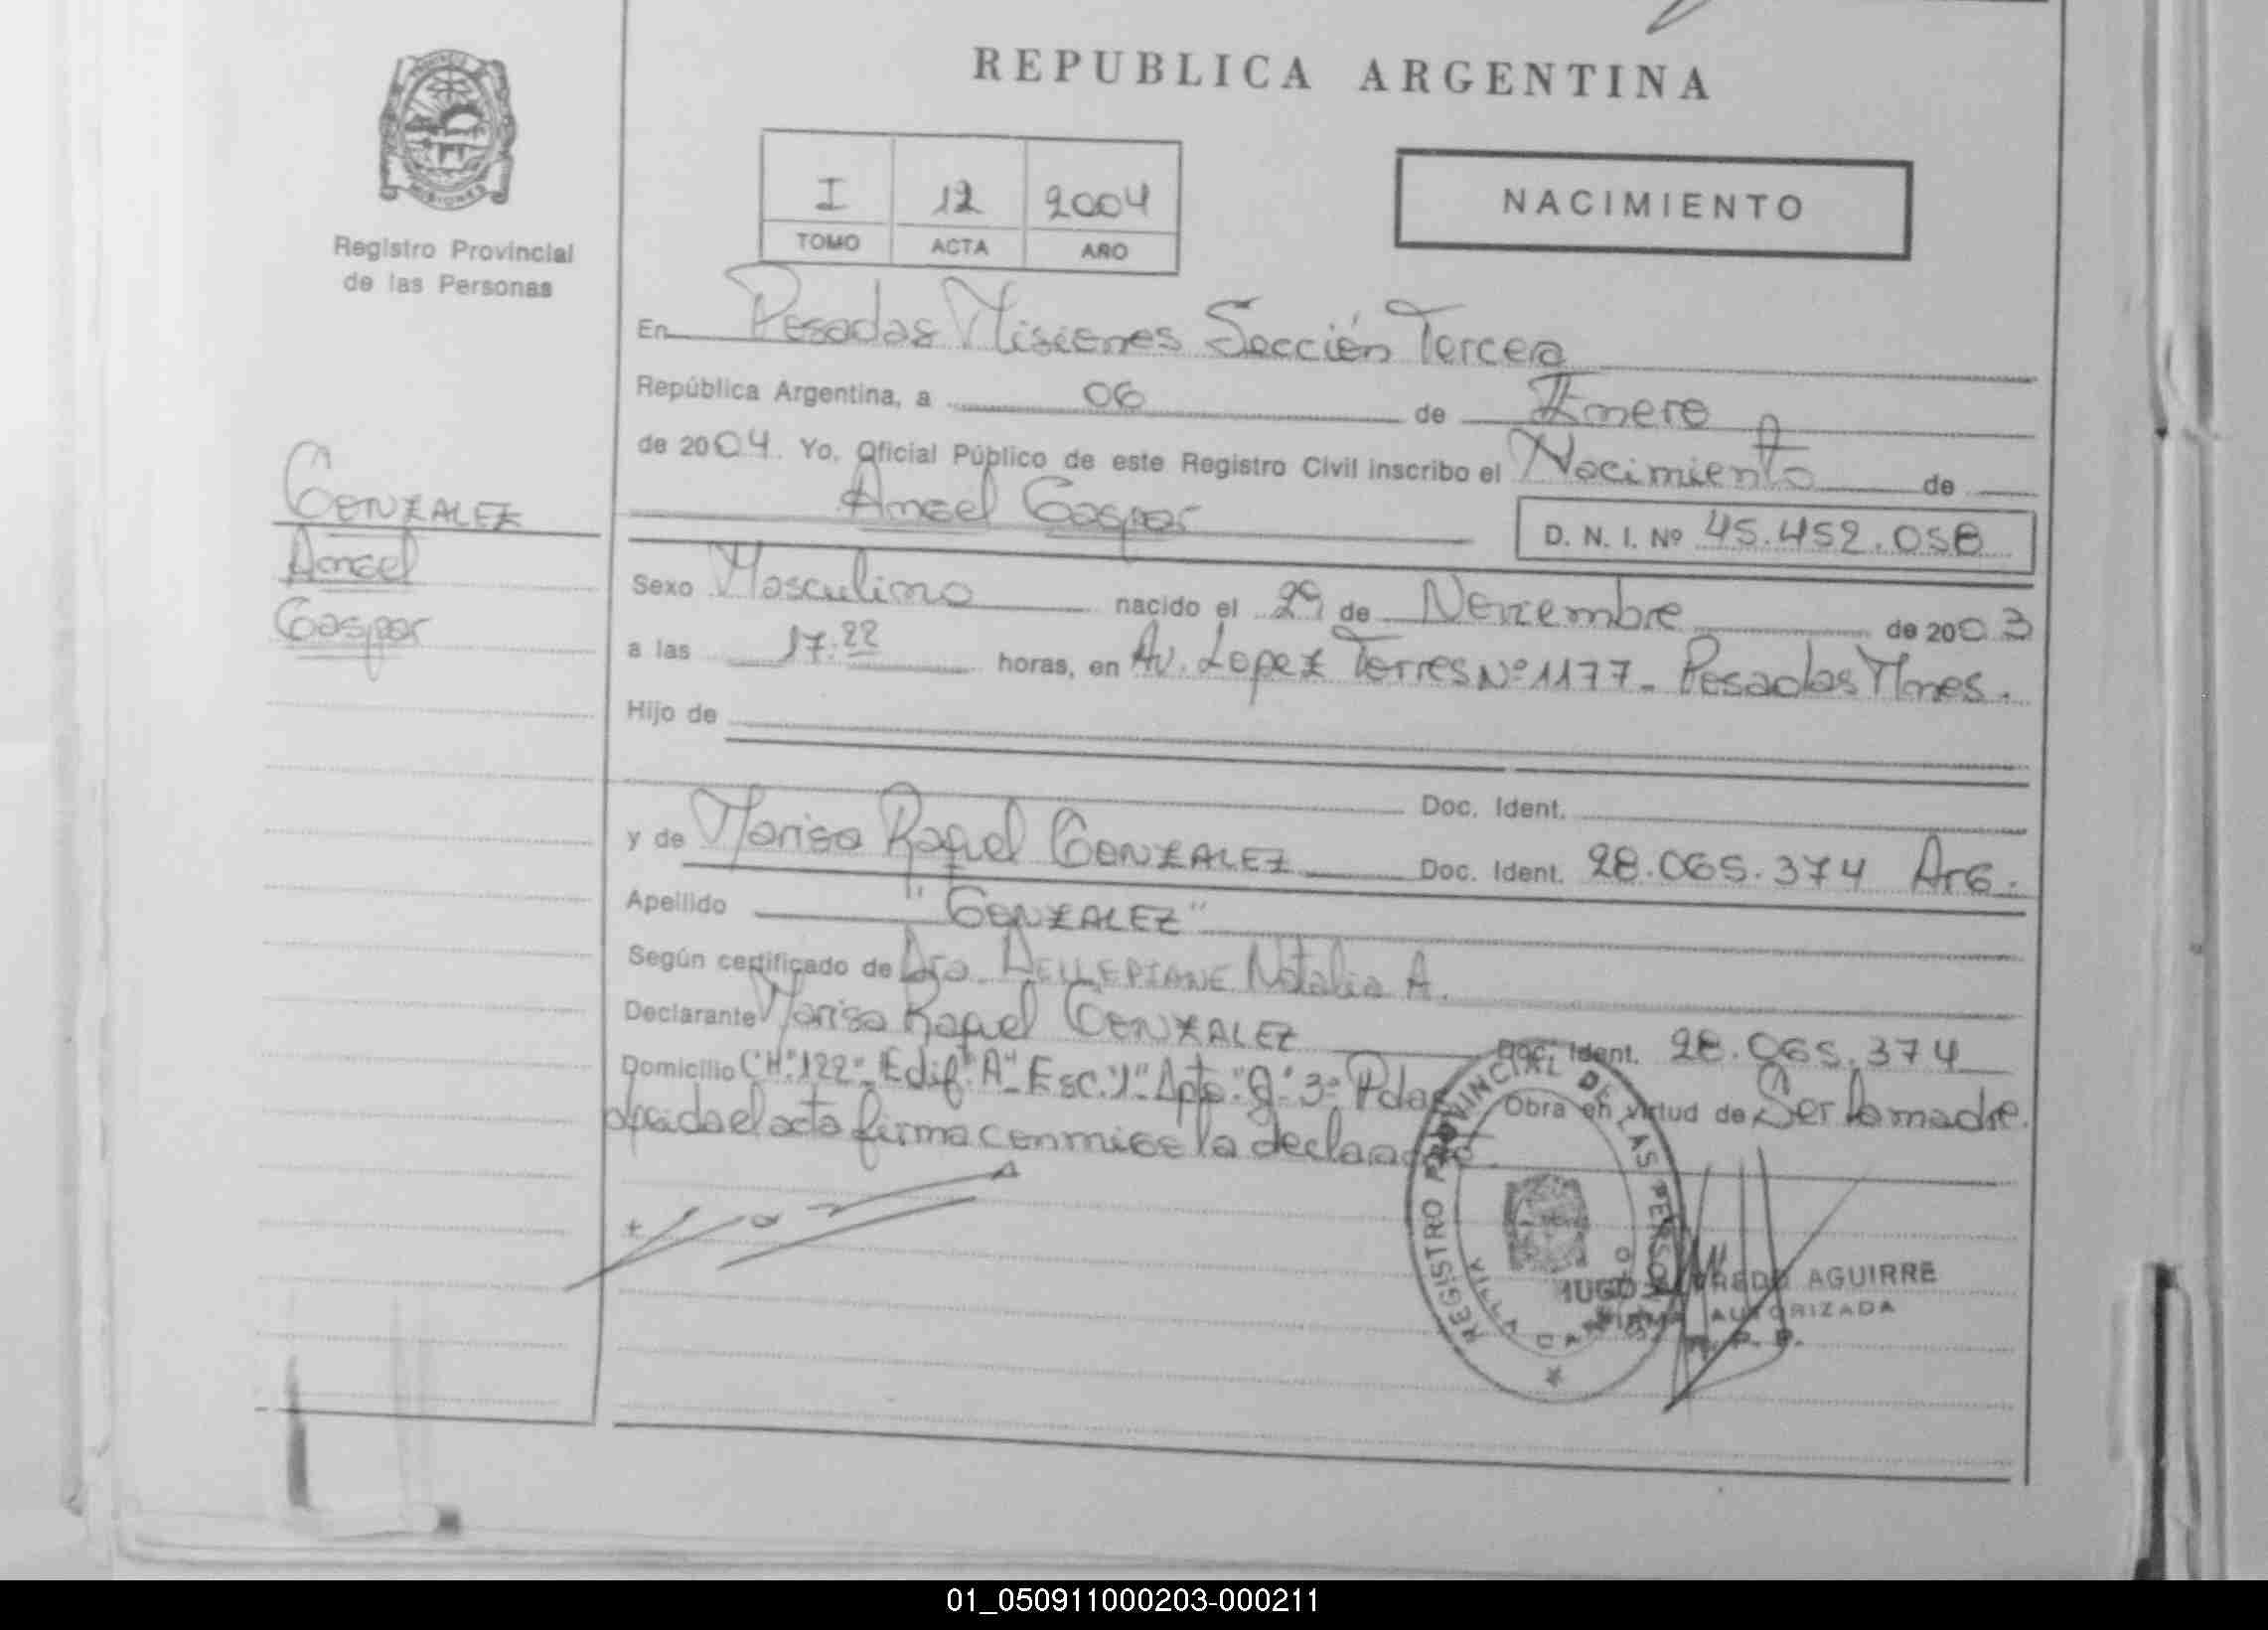 REPUBLICA ARGENTINA
MISIONES
Registro Provincial
de las Personas
I 12 2004
TOMO ACTA AÑO
NACIMIENTO
En Posadas Misiones Sección Tercera
República Argentina, a 06 de Enero
de 2004. Yo, Oficial Público de este Registro Civil inscribo el Nacimiento de
Angel Gaspar
D. N. I. Nº 45.452.058
GONZALEZ
Angel
Gaspar
Sexo Masculino nacido el 29 de Noviembre de 2003
a las 17:22 horas, en Av. Lopez Torres Nº 1177 - Posadas Mnes.
Hijo de
Doc. Ident.
y de Marisa Raquel GONZALEZ Doc. Ident. 28.065.374 Arg.
Apellido "GONZALEZ"
Según certificado de Dra. DELLEPIANE Natalia A.
Declarante Marisa Raquel GONZALEZ Doc. Ident. 28.065.374
Domicilio CH:122- Edif "A"- Esc."1" Dpto "g" 3º Pdas Obra en virtud de Ser la madre.
el acta firma conmigo la declarante.
REGISTRO PROVINCIAL DE LAS PERSONAS
VILLA
HUGO ALFREDO AGUIRRE
FIRMA AUTORIZADA
R. P. P.
01_050911000203-000211